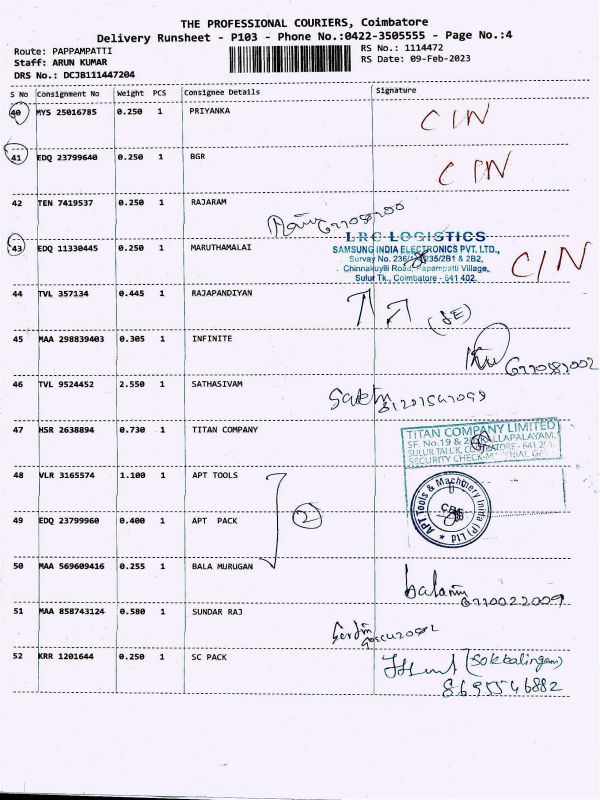 THE PROFESSIONAL COURIERS, Coimbatore
Delivery Runsheet - P103 - Phone No.:0422-3505555 - Page No.:4
Route: PAPPAMPATTI
RS No.: 1114472
Staff: ARUN KUMAR
RS Date: 09-Feb-2023
DRS No.: DCJB111447204
S No Consignment No Weight PCS Consignee Details Signature
40 MYS 25016785 0.250 1 PRIYANKA CIN
41 EDQ 23799640 0.250 1 BGR CIN
42 TEN 7419537 0.250 1 RAJARAM
43 EDQ 11330445 0.250 1 MARUTHAMALAI C/N
LRC LOGISTICS
SAMSUNG INDIA ELECTRONICS PVT. LTD.,
Survay No. 235/2B1 & 2B2,
Chinnakuylli Road, Papampatti Village,
Sulur Tk., Coimbatore - 641 402.
44 TVL 357134 0.445 1 RAJAPANDIYAN
45 MAA 298839403 0.305 1 INFINITE
46 TVL 9524452 2.550 1 SATHASIVAM
47 HSR 2638894 0.730 1 TITAN COMPANY
TITAN COMPANY LIMITED
SF. No.19 & PALLAPALAYAM,
SULUR TALUK, COIMBATORE - 641
SECURITY CHECK-MATERIAL
48 VLR 3165574 1.100 1 APT TOOLS
49 EDQ 23799960 0.400 1 APT PACK
2
APT Tools & Machinery India (P) Ltd
50 MAA 569609416 0.255 1 BALA MURUGAN
51 MAA 858743124 0.580 1 SUNDAR RAJ
52 KRR 1201644 0.250 1 SC PACK
(Sokkalingam)
8695546882